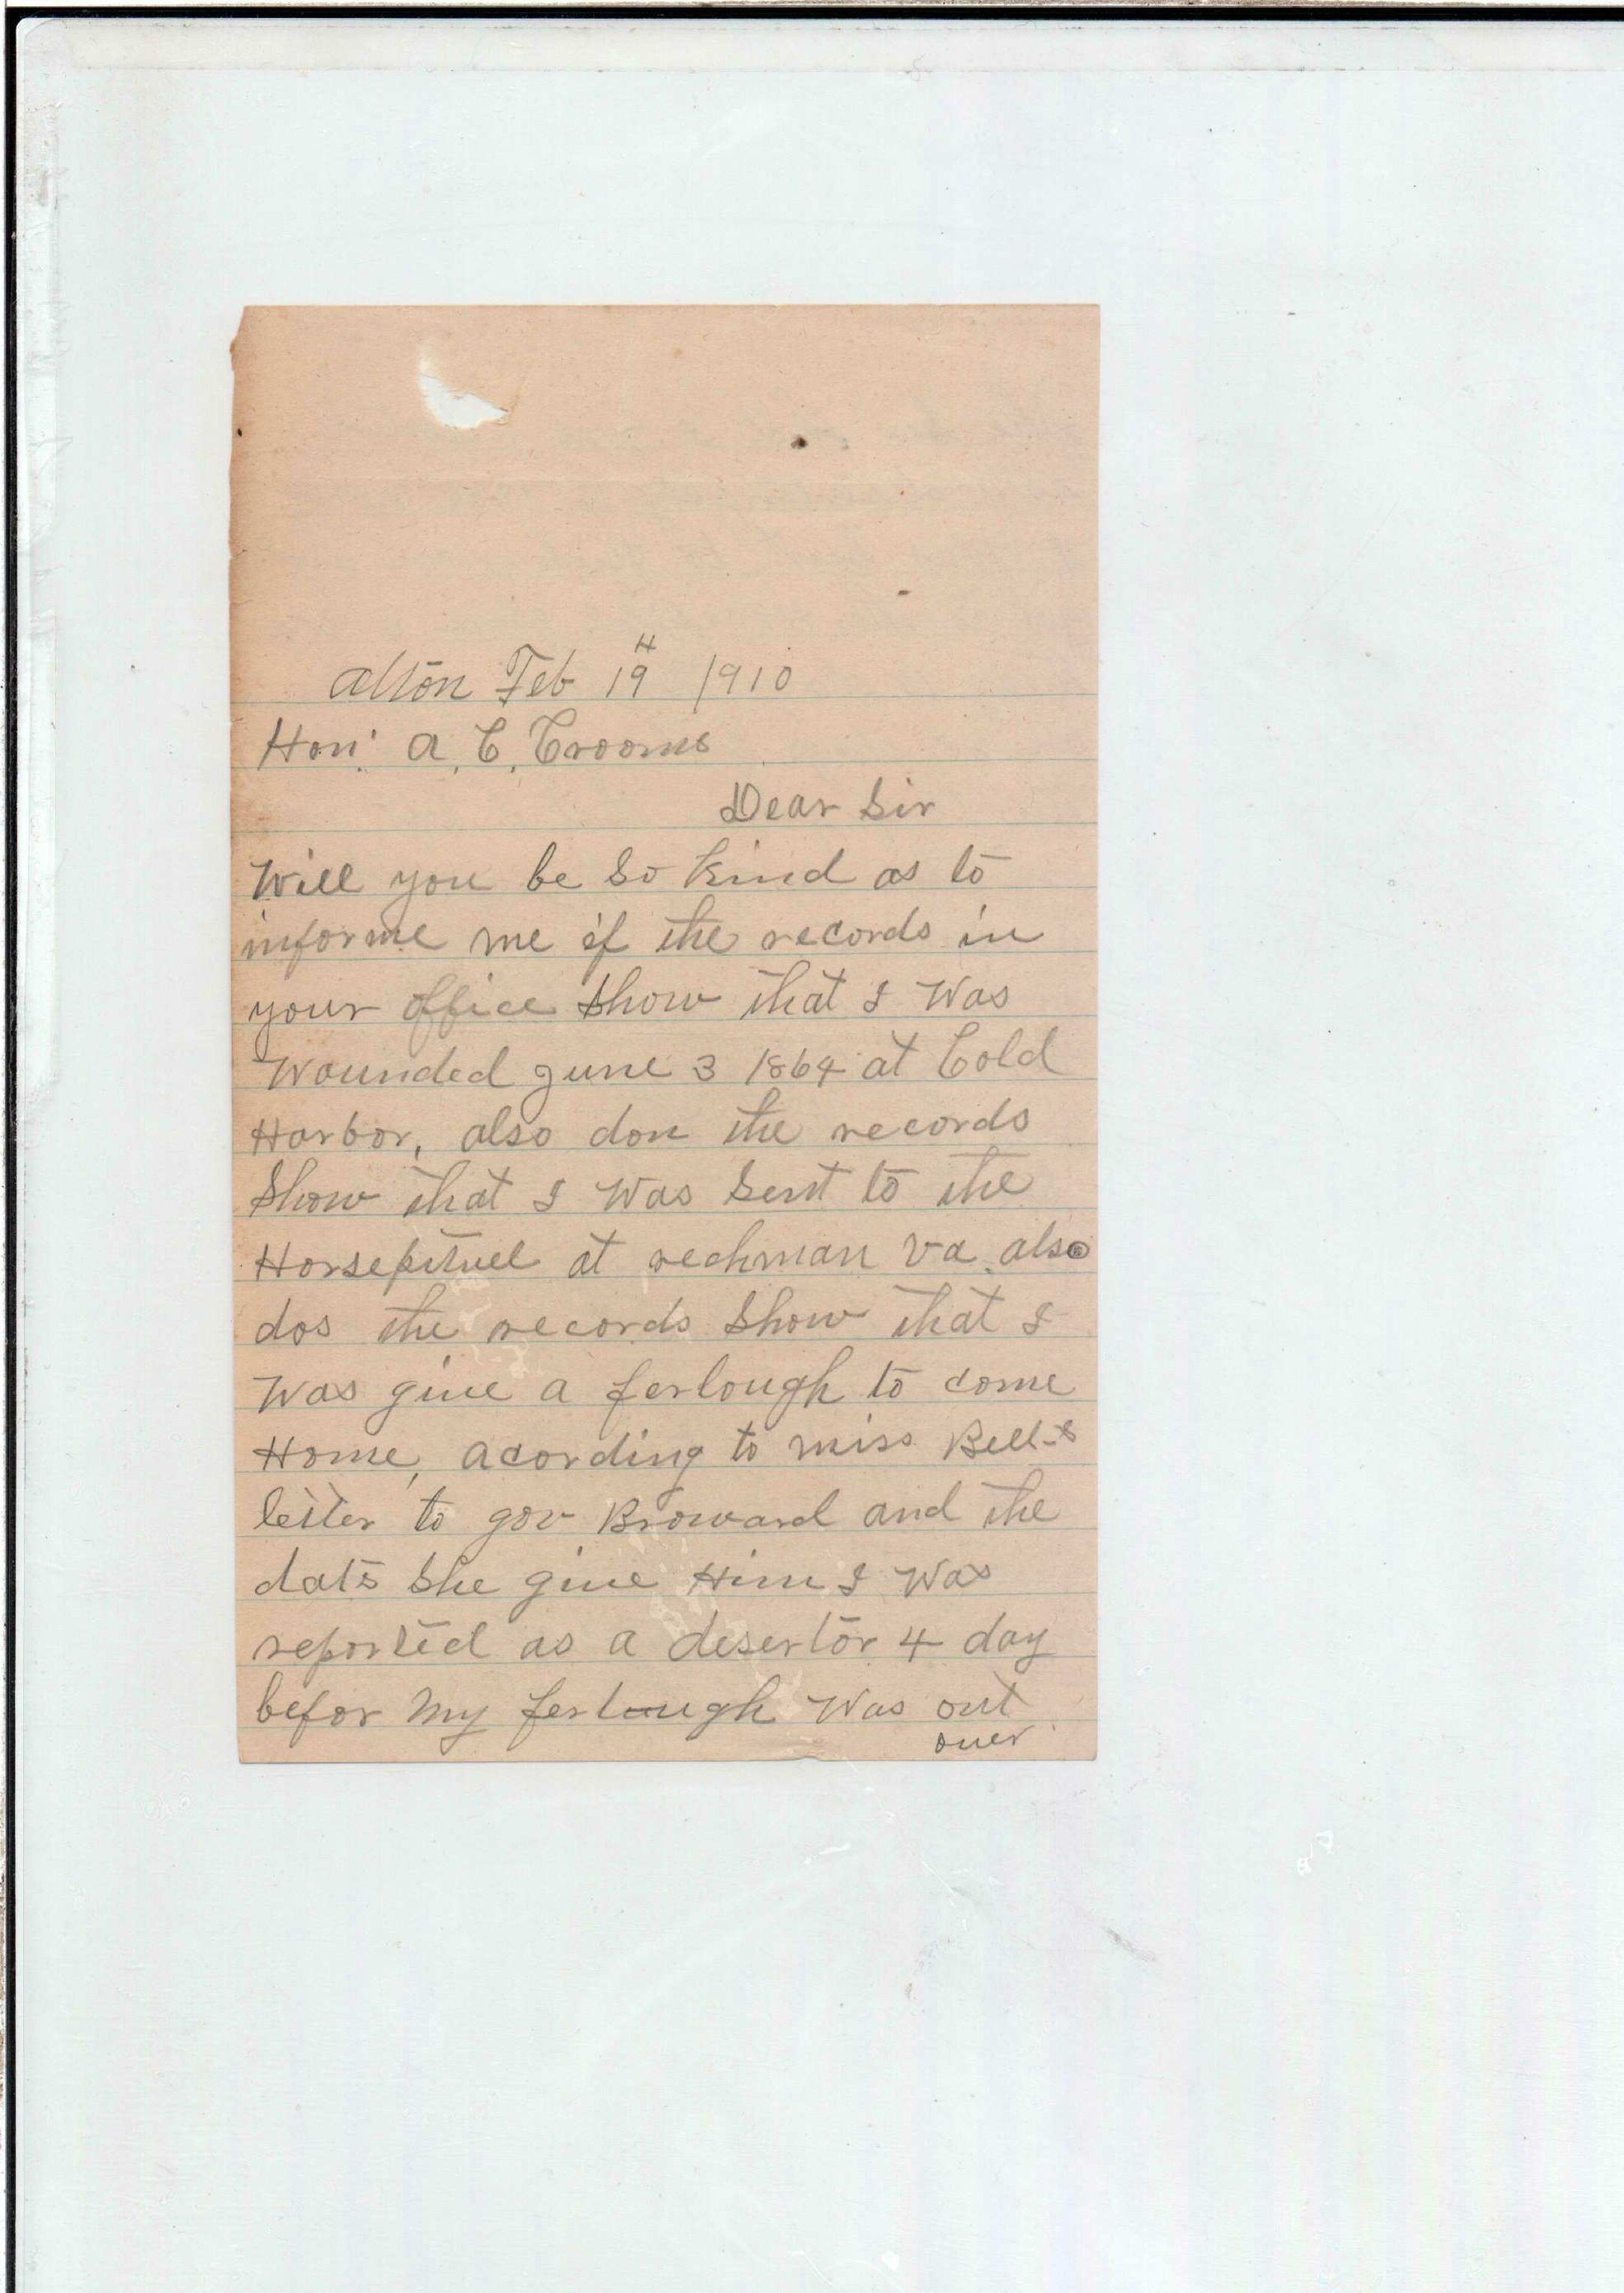 Alton Feb 19th 1910
Hon. A. C. Crooms
Dear Sir
Will you be So Kind as to
informe me if the records in
your office Show that I Was
Wounded June 3 1864 at Cold
Harbor, also don the records
Show that I Was Sent to the
Horsepituel at rechman va. also
dos the records Show that I
Was give a ferlough to come
Home, acording to miss Bell-s
letter to gov Broward and the
dats She give Him I Was
reported as a desertor 4 day
befor My ferlough Was out
over